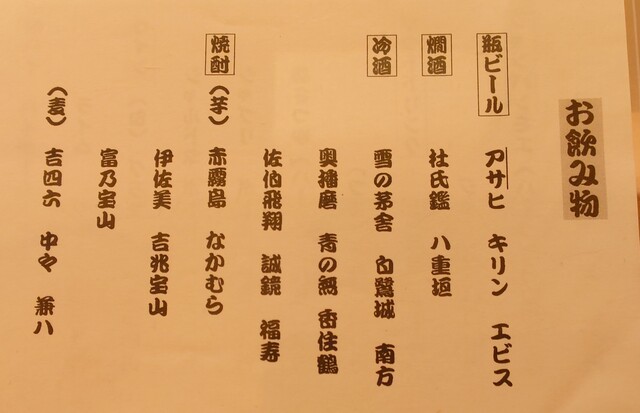 お飲み物
瓶ビール アサヒ キリン エビス
燗酒 杜氏鑑 八重垣
冷酒 雪の茅舎 白鷺城 南方
奥播磨 香住鶴
佐伯飛翔 誠鏡 福寿
焼酎 (芋) 赤霧島 なかむら
伊佐美 吉兆宝山
富乃宝山
(麦) 吉四六 中々 兼八